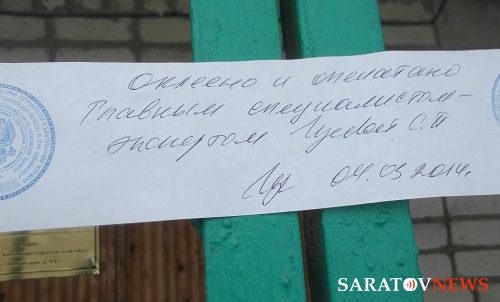 Оклеено и опечатано
Главным специалистом-
экспертом Гусевой С.П
04.03.2014г.
SARATOVNEWS